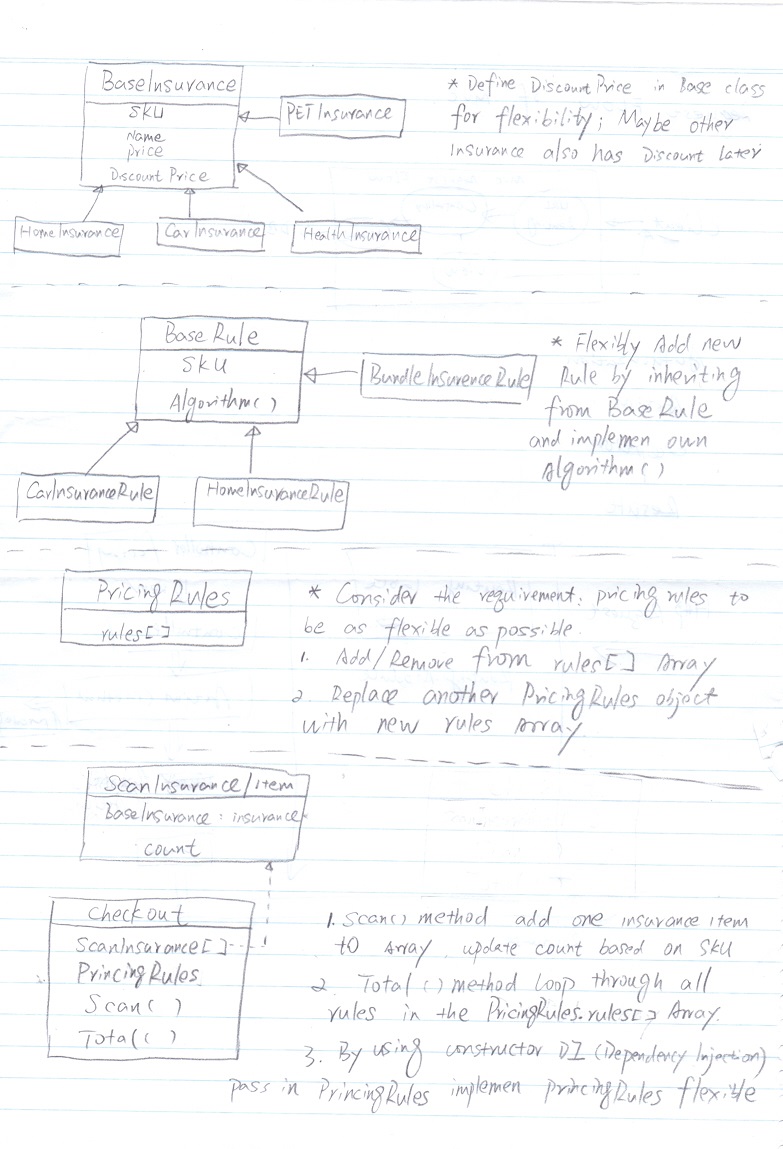 BaseInsurance
SKU
Name
price
Discount Price
PETInsurance
* Define DiscountPrice in Base class
for flexibility; Maybe other
Insurance also has Discount later
HomeInsurance
CarInsurance
HealthInsurance
Base Rule
SKU
Algorithm()
BundleInsurenceRule
* Flexibly Add new
Rule by inheriting
from BaseRule
and implemen own
Algorithm()
CarInsuranceRule
HomeInsuranceRule
Pricing Rules
rules[]
* Consider the requirement: pricing rules to
be as flexible as possible.
1. Add/Remove from rules[] Array
2. Replace another PricingRules object
with new rules Array
ScanInsurance/Item
BaseInsurance: insurance
count
checkout
ScanInsurance[]
PrincingRules
Scan()
Total()
1. Scan() method add one insurance item
to Array. update count based on SKU
2. Total() method loop through all
rules in the PricingRules.rules[] Array.
3. By using constructor DI (Dependency Injection)
pass in PrincingRules implemen princingRules flexible